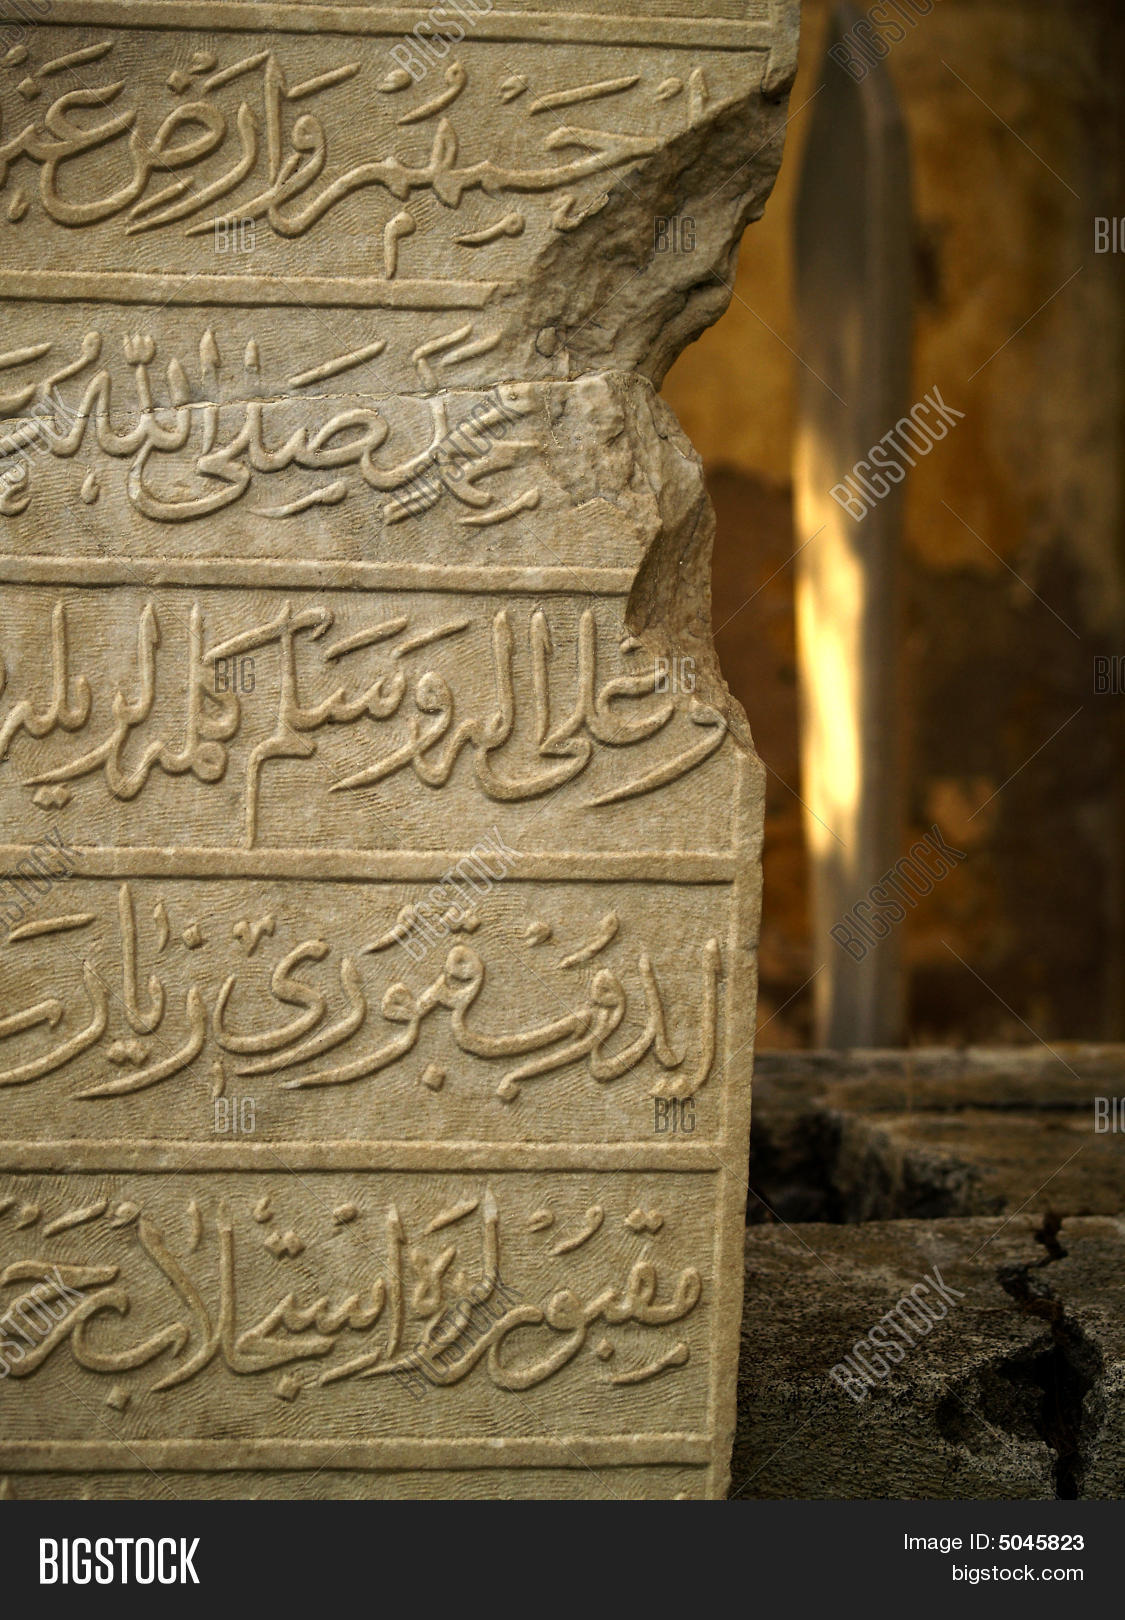 جميعهم وارض عنهم
محمد صلى الله
وعلى اله وسلم كلمه لريله
ايدوب قبورى زيارت
مقبور لره استجلاب
BIGSTOCK
Image ID: 5045823
bigstock.com